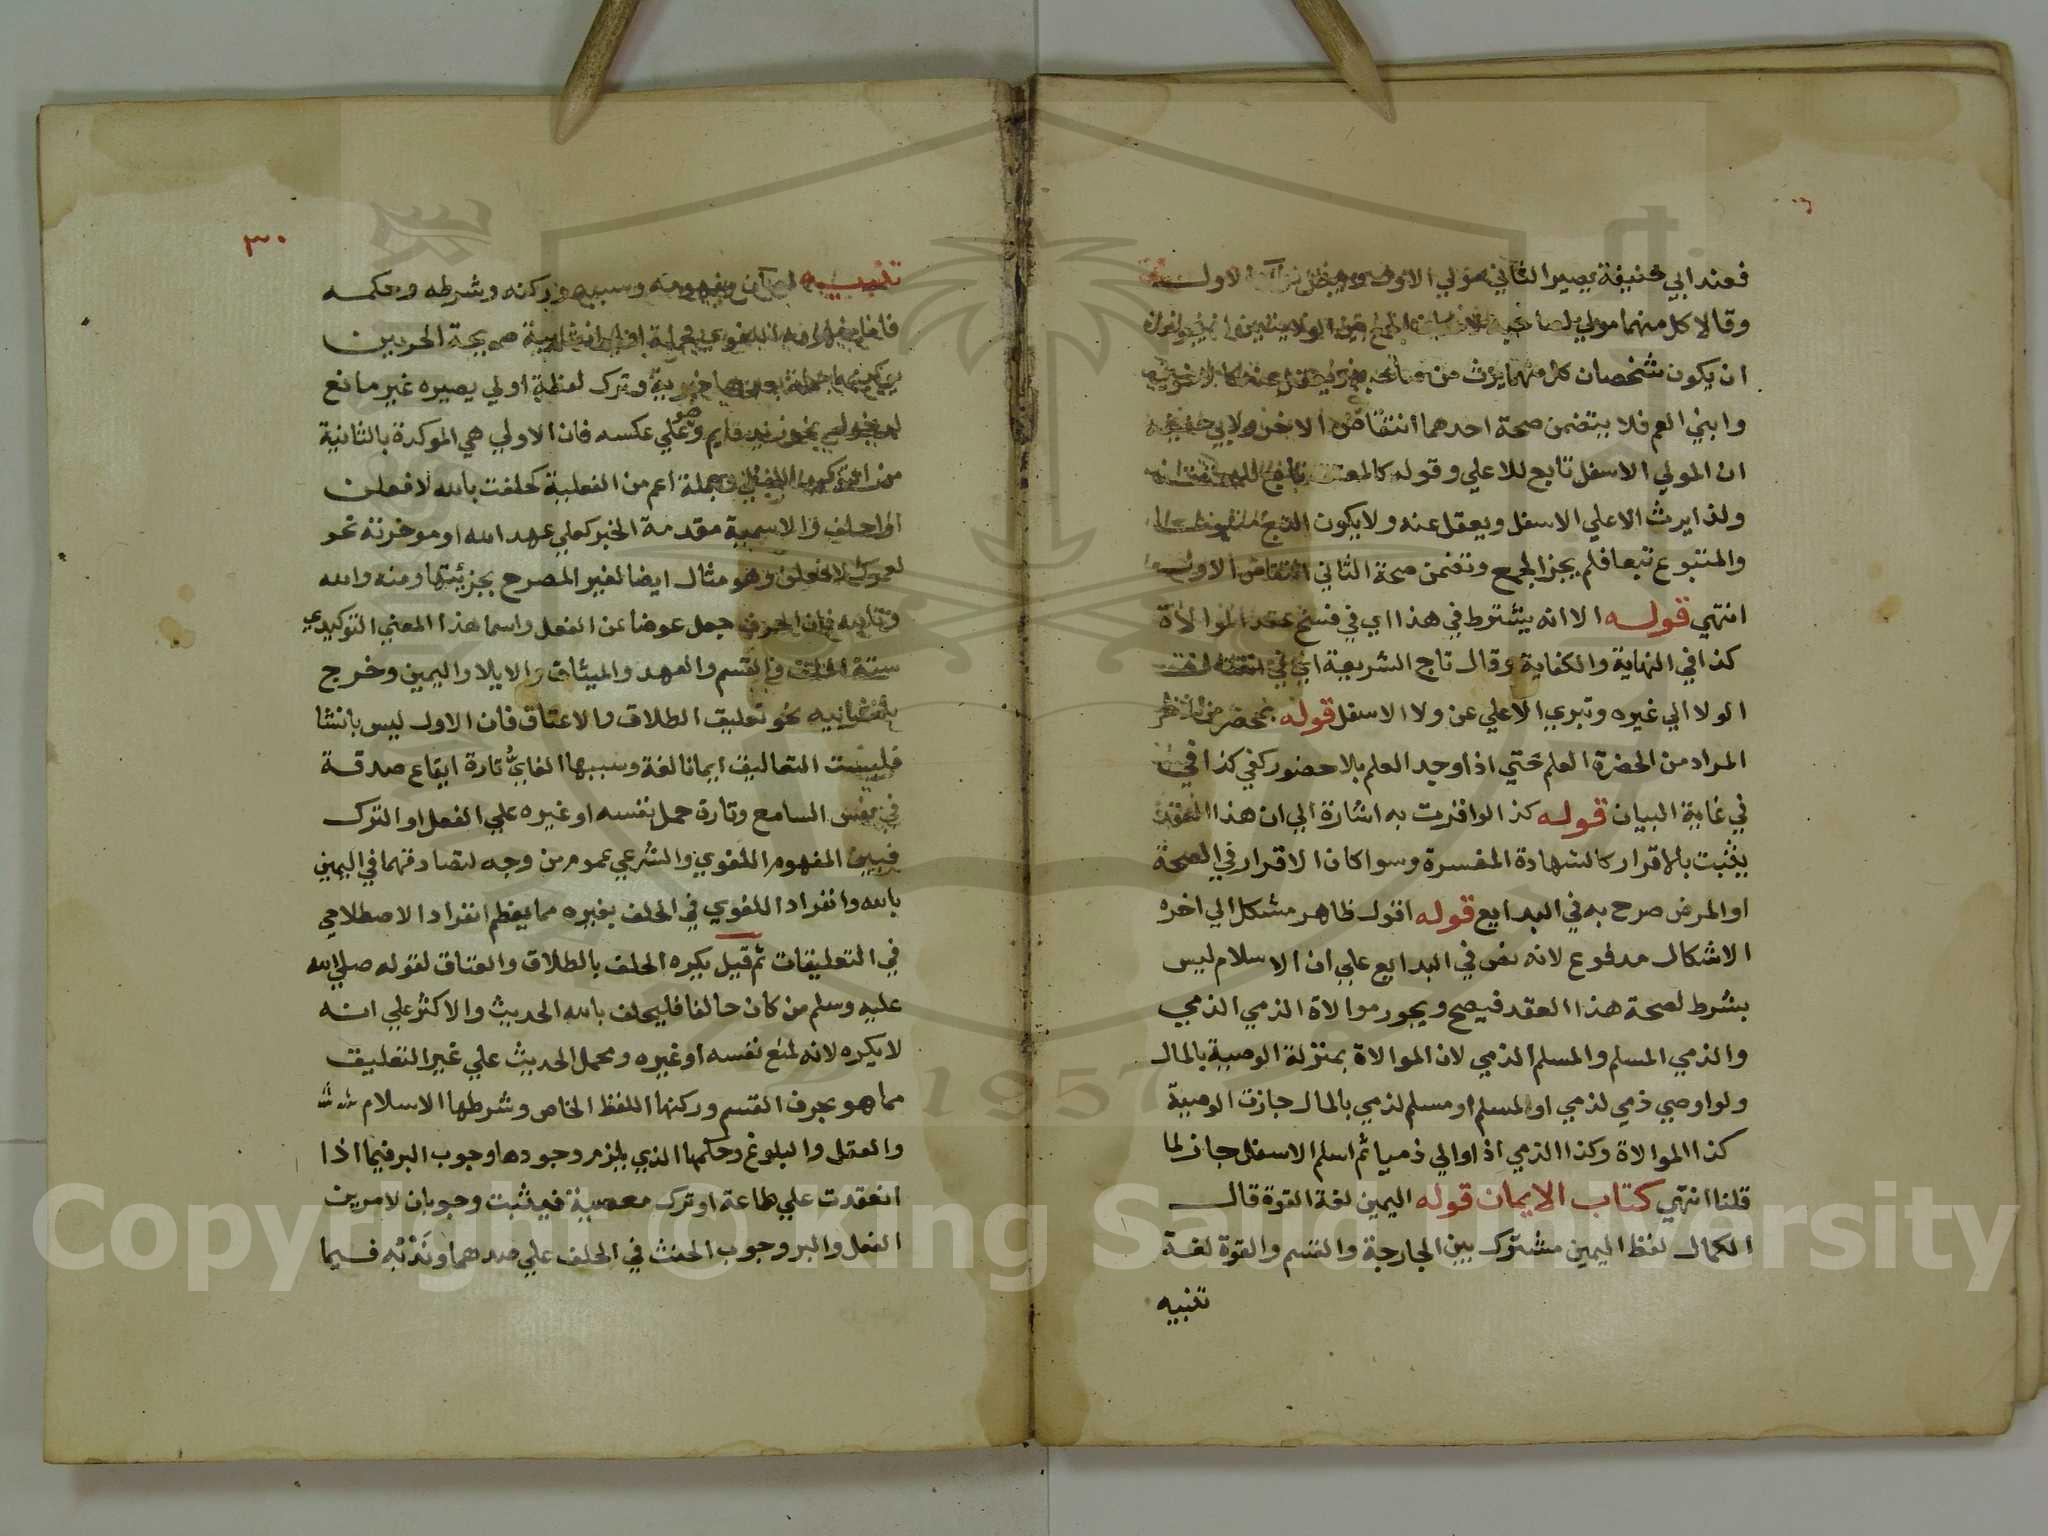 فعند ابي حنيفة يصير الثاني مولي الاول ويبطل الاول
وقالا كل منهما مولي لصاحبه
ان يكون شخصان كل منهما يرث من صاحبه
وابني العم فلا يتضمن صحة احدهما انتقاض الاخر ولابي حنيفة
ان المولي الاسفل تابع للاعلي وقوله كالمعتق
ولذا يرث الاعلي الاسفل ويعقل عنه ولا يكون التبع متبوعا
والمتبوع تبعا فلم يجز الجمع وتضمن صحة الثاني انتقاض الاول
انتهي قوله الا انه يشترط في هذا اي في فسخ عقد الموالاة
كذا في النهاية والكفاية وقال تاج الشريعة اي في
الولا الي غيره وتبري الاعلي عن ولا الاسفل قوله بمحضر من الاخر
المراد من الحضرة العلم حتي اذا وجد العلم بلا حضور كفي كذا في
في غاية البيان قوله كذا لو اقرت به اشارة الي ان هذا العقد
يثبت بالاقرار كالشهادة المفسرة وسوا كان الاقرار في الصحة
او المرض صرح به في البدايع قوله اقول ظاهر مشكل الي اخره
الاشكال مدفوع لانه نص في البدايع علي ان الاسلام ليس
بشرط لصحة هذا العقد فيصح ويجوز موالاة الذمي الذمي
والذمي المسلم والمسلم الذمي لان الموالاة بمنزلة الوصية بالمال
ولو اوصي ذمي لذمي او لمسلم او مسلم لذمي بالمال جازت الوصية
كذا الموالاة وكذا الذمي اذا والي ذميا ثم اسلم الاسفل جاز لما
قلنا انتهي كتاب الايمان قوله اليمين لغة القوة قال
الكمال لفظ اليمين مشترك بين الجارحة والقسم والقوة لغة
تنبيه
٣٠
تنبيه مفهومه وسببه وركنه وشرطه وحكمه
جملة اولي انشائية صريحة الجزءين
وترك لفظة اولي يصيره غير مانع
لدخول نحو زيد قايم وهو علي عكسه فان الاولي هي الموكدة بالثانية
من التوكيد اللفظي وجملة اعم من الفعلية كحلفت بالله لافعلن
او احلف والاسمية مقدمة الخبر كعلي عهد الله او موخرته نحو
لعمرك لافعلن وهو مثال ايضا لغير المصرح بجزئيتها ومنه والله
وتالله فان الحرف جعل عوضا عن الفعل واسما هذا المعني التوكيدي
ستة الحلف والقسم والعهد والميثاق والايلا واليمين وخرج
بانشائيه نحو تعليق الطلاق والاعتاق فان الاول ليس بانشا
فليست التعاليق ايمانا لغة وسببها الغايي تارة ايقاع صدقه
في نفس السامع وتارة حمل نفسه او غيره علي الفعل او الترك
فبين المفهوم اللغوي والشرعي عموم من وجه لتصادقهما في اليمين
بالله وانفراد اللغوي في الحلف بغيره مما يعظم انفراد الاصطلاحي
في التعليقات ثم قيل يكره الحلف بالطلاق والعتاق لقوله صلي الله
عليه وسلم من كان حالفا فليحلف بالله الحديث والاكثر علي انه
لا يكره لانه لمنع نفسه او غيره ومحمل الحديث علي غير التعليق
مما هو بحرف القسم وركنها اللفظ الخاص وشرطها الاسلام
والعقل والبلوغ وحكمها الذي يلزم وجودها وجوب البر فيما اذا
انعقدت علي طاعة او ترك معصية فيثبت وجوبان لامرين
الفعل والبر وجوب الحنث في الحلف علي ضدهما وندبه فيما
1957
Copyright © King Saud University